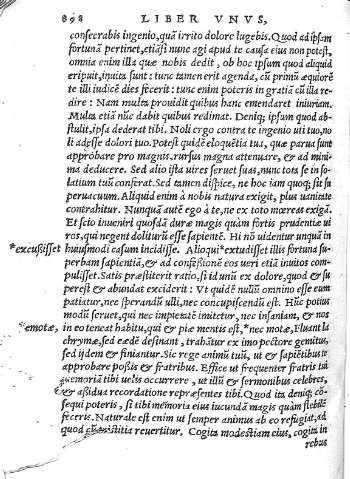 898 LIBER VNVS,
consecrabis ingenio, quā irrito dolore lugebis. Quod ad ipsam
fortunā pertinet, etiāsi nunc agi apud te causa eius non potest,
omnia enim illa quæ nobis dedit, ob hoc ipsum quod aliquid
eripuit, inuisa sunt: tunc tamen erit agenda, cū primū æquiorē
te illi iudicē dies fecerit: tunc enim poteris in gratiā cū illa re=
dire: Nam multa prouidit quibus hanc emendaret iniuriam.
Multa etiā nūc dabit quibus redimat. Deniq; ipsum quod ab=
stulit, ipsa dederat tibi. Noli ergo contra te ingenio uti tuo, no=
li adesse dolori tuo. Potest quidē eloquētia tua, quæ parua sunt
approbare pro magnis. rursus magna attenuare, & ad mini=
ma deducere. Sed alio ista uires seruet suas, nunc tota se in so=
latium tuū conferat. Sed tamen dispice, ne hoc iam quoq; sit su
peruacuum. Aliquid enim à nobis natura exigit, plus uanitate
contrahitur. Nunquā autē ego à te, ne ex toto mœreas exigā.
Et scio inueniri quosdā duræ magis quàm fortis prudentiæ ui
ros, qui negent doliturū esse sapientē. Hi nō uidentur unquā in
*excussisset huiusmodi casum incidisse. Alioqui *extudisset illis fortuna su=
perbam sapientiā, & ad confeßionē eos ueri etiā inuitos com=
pulisset. Satis præstiterit ratio, si id unū ex dolore, quod & su=
perest & abundat exciderit: Vt quidē nullū omnino esse eum
patiatur, nec sperandū ulli, nec concupiscendū est. Hūc potius
modū seruet, qui nec impietatē imitetur, nec insaniam, & nos
*emotæ, in eo teneat habitu, qui & piæ mentis est, *nec motæ, Fluant la
chrymæ, sed eædē desinant, trahātur ex imo pectore gemitus,
sed ijdem & finiantur. Sic rege animū tuū, ut & sapiētibus te
approbare poßis & fratribus. Effice ut frequenter fratris tui
memoria tibi uelis occurrere, ut illū & sermonibus celebres,
& aßidua recordatione repræsentes tibi. Quod ita deniq; cō=
sequi poteris, si tibi memoriā eius iucundā magis quàm flebilē
feceris. Naturale est enim ut semper animus ab eo refugiat, ad
quod cū tristitia reuertitur. Cogita modestiam eius, cogita in
rebus